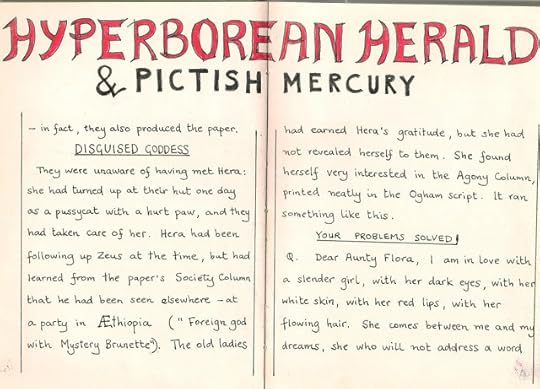 HYPERBOREAN HERALD
& PICTISH MERCURY
– in fact, they also produced the paper.
DISGUISED GODDESS
They were unaware of having met Hera:
she had turned up at their hut one day
as a pussycat with a hurt paw, and they
had taken care of her. Hera had been
following up Zeus at the time, but had
learned from the paper's Society Column
that he had been seen elsewhere – at
a party in Æthiopia ("Foreign god
with Mystery Brunette"). The old ladies
had earned Hera's gratitude, but she had
not revealed herself to them. She found
herself very interested in the Agony Column,
printed neatly in the Ogham script. It ran
something like this.
YOUR PROBLEMS SOLVED!
Q. Dear Aunty Flora, I am in love with
a slender girl, with her dark eyes, with her
white skin, with her red lips, with her
flowing hair. She comes between me and my
dreams, she who will not address a word